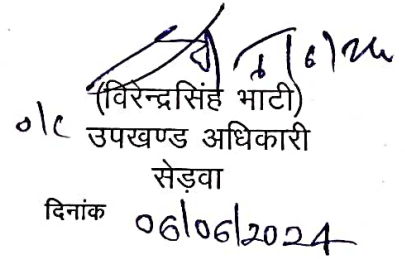 6/6/24
(विरेन्द्रसिंह भाटी)
o/c उपखण्ड अधिकारी
सेड़वा
दिनांक 06/06/2024